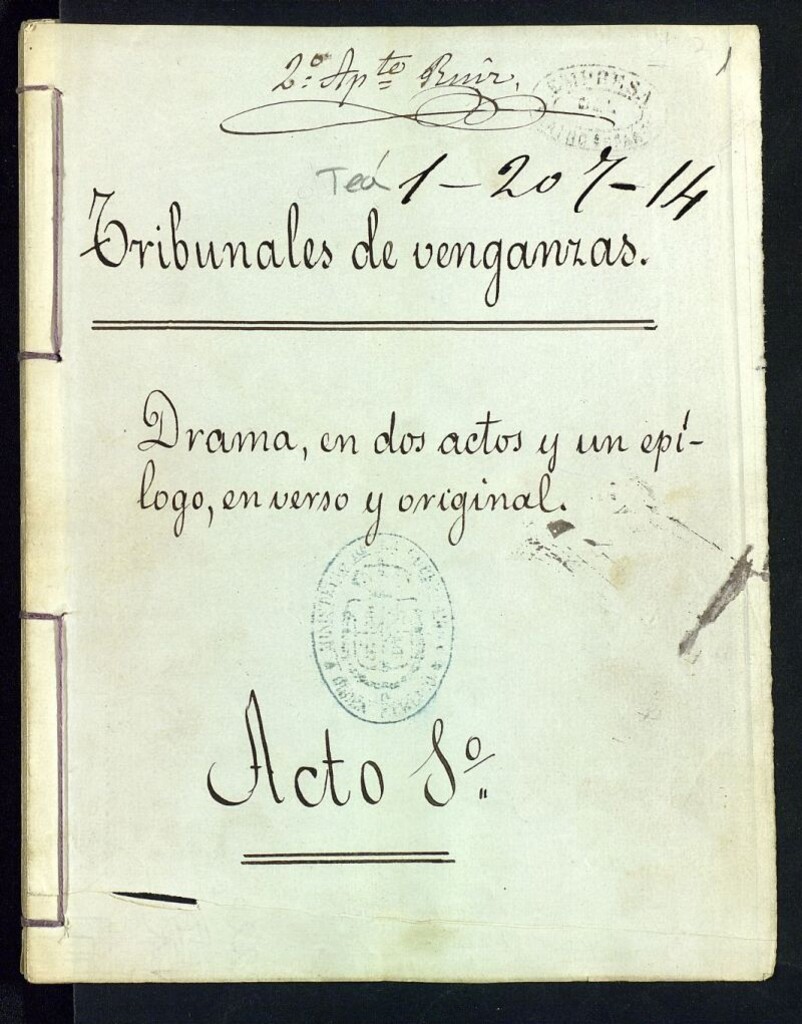 2.º Ap.te Ruiz.
1
EMPRESA
Tea 1-207-14
Tribunales de venganzas.
Drama, en dos actos y un epí-
logo, en verso y original.
Acto 1º.